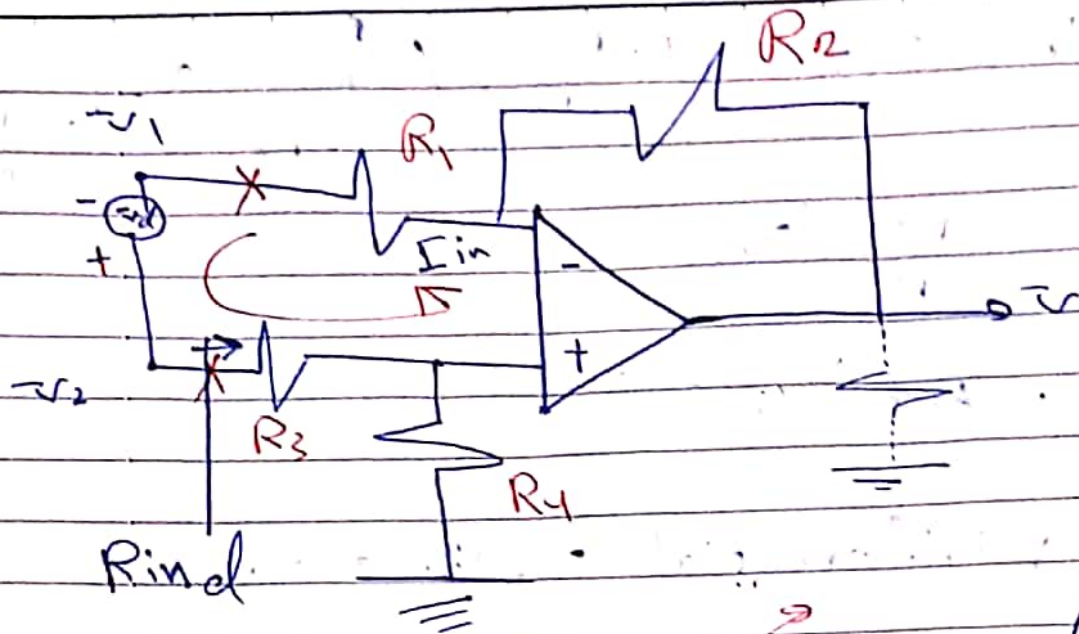 R2
-v1
R1
-
-vd
+
Iin
-
+
-v2
R3
R4
Rind